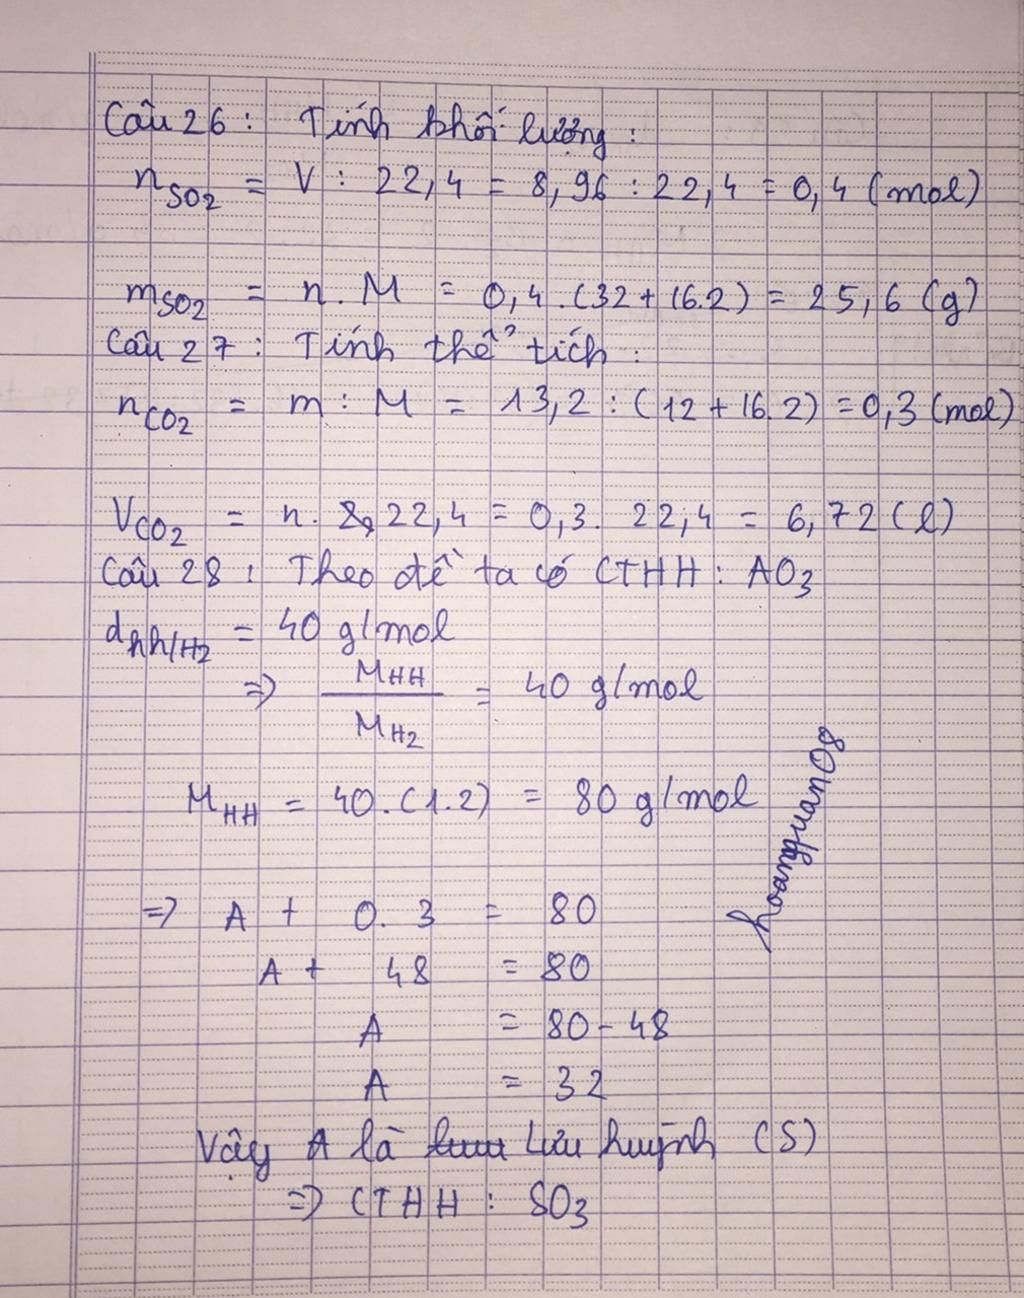 Câu 26 : Tính khối lượng :
nSO2 = V : 22,4 = 8,96 : 22,4 = 0,4 (mol)
mSO2 = n . M = 0,4 . (32 + 16.2) = 25,6 (g)
Câu 27 : Tính thể tích :
nCO2 = m : M = 13,2 : (12 + 16.2) = 0,3 (mol)
VCO2 = n . 22,4 = 0,3 . 22,4 = 6,72 (l)
Câu 28 : Theo đề ta có CTHH : AO3
dhh/H2 = 40 g/mol
=> MHH / MH2 = 40 g/mol
MHH = 40.(1.2) = 80 g/mol
=> A + O. 3 = 80
A + 48 = 80
A = 80 - 48
A = 32
Vậy A là Lưu huỳnh (S)
=> CTHH : SO3
hoangquan08